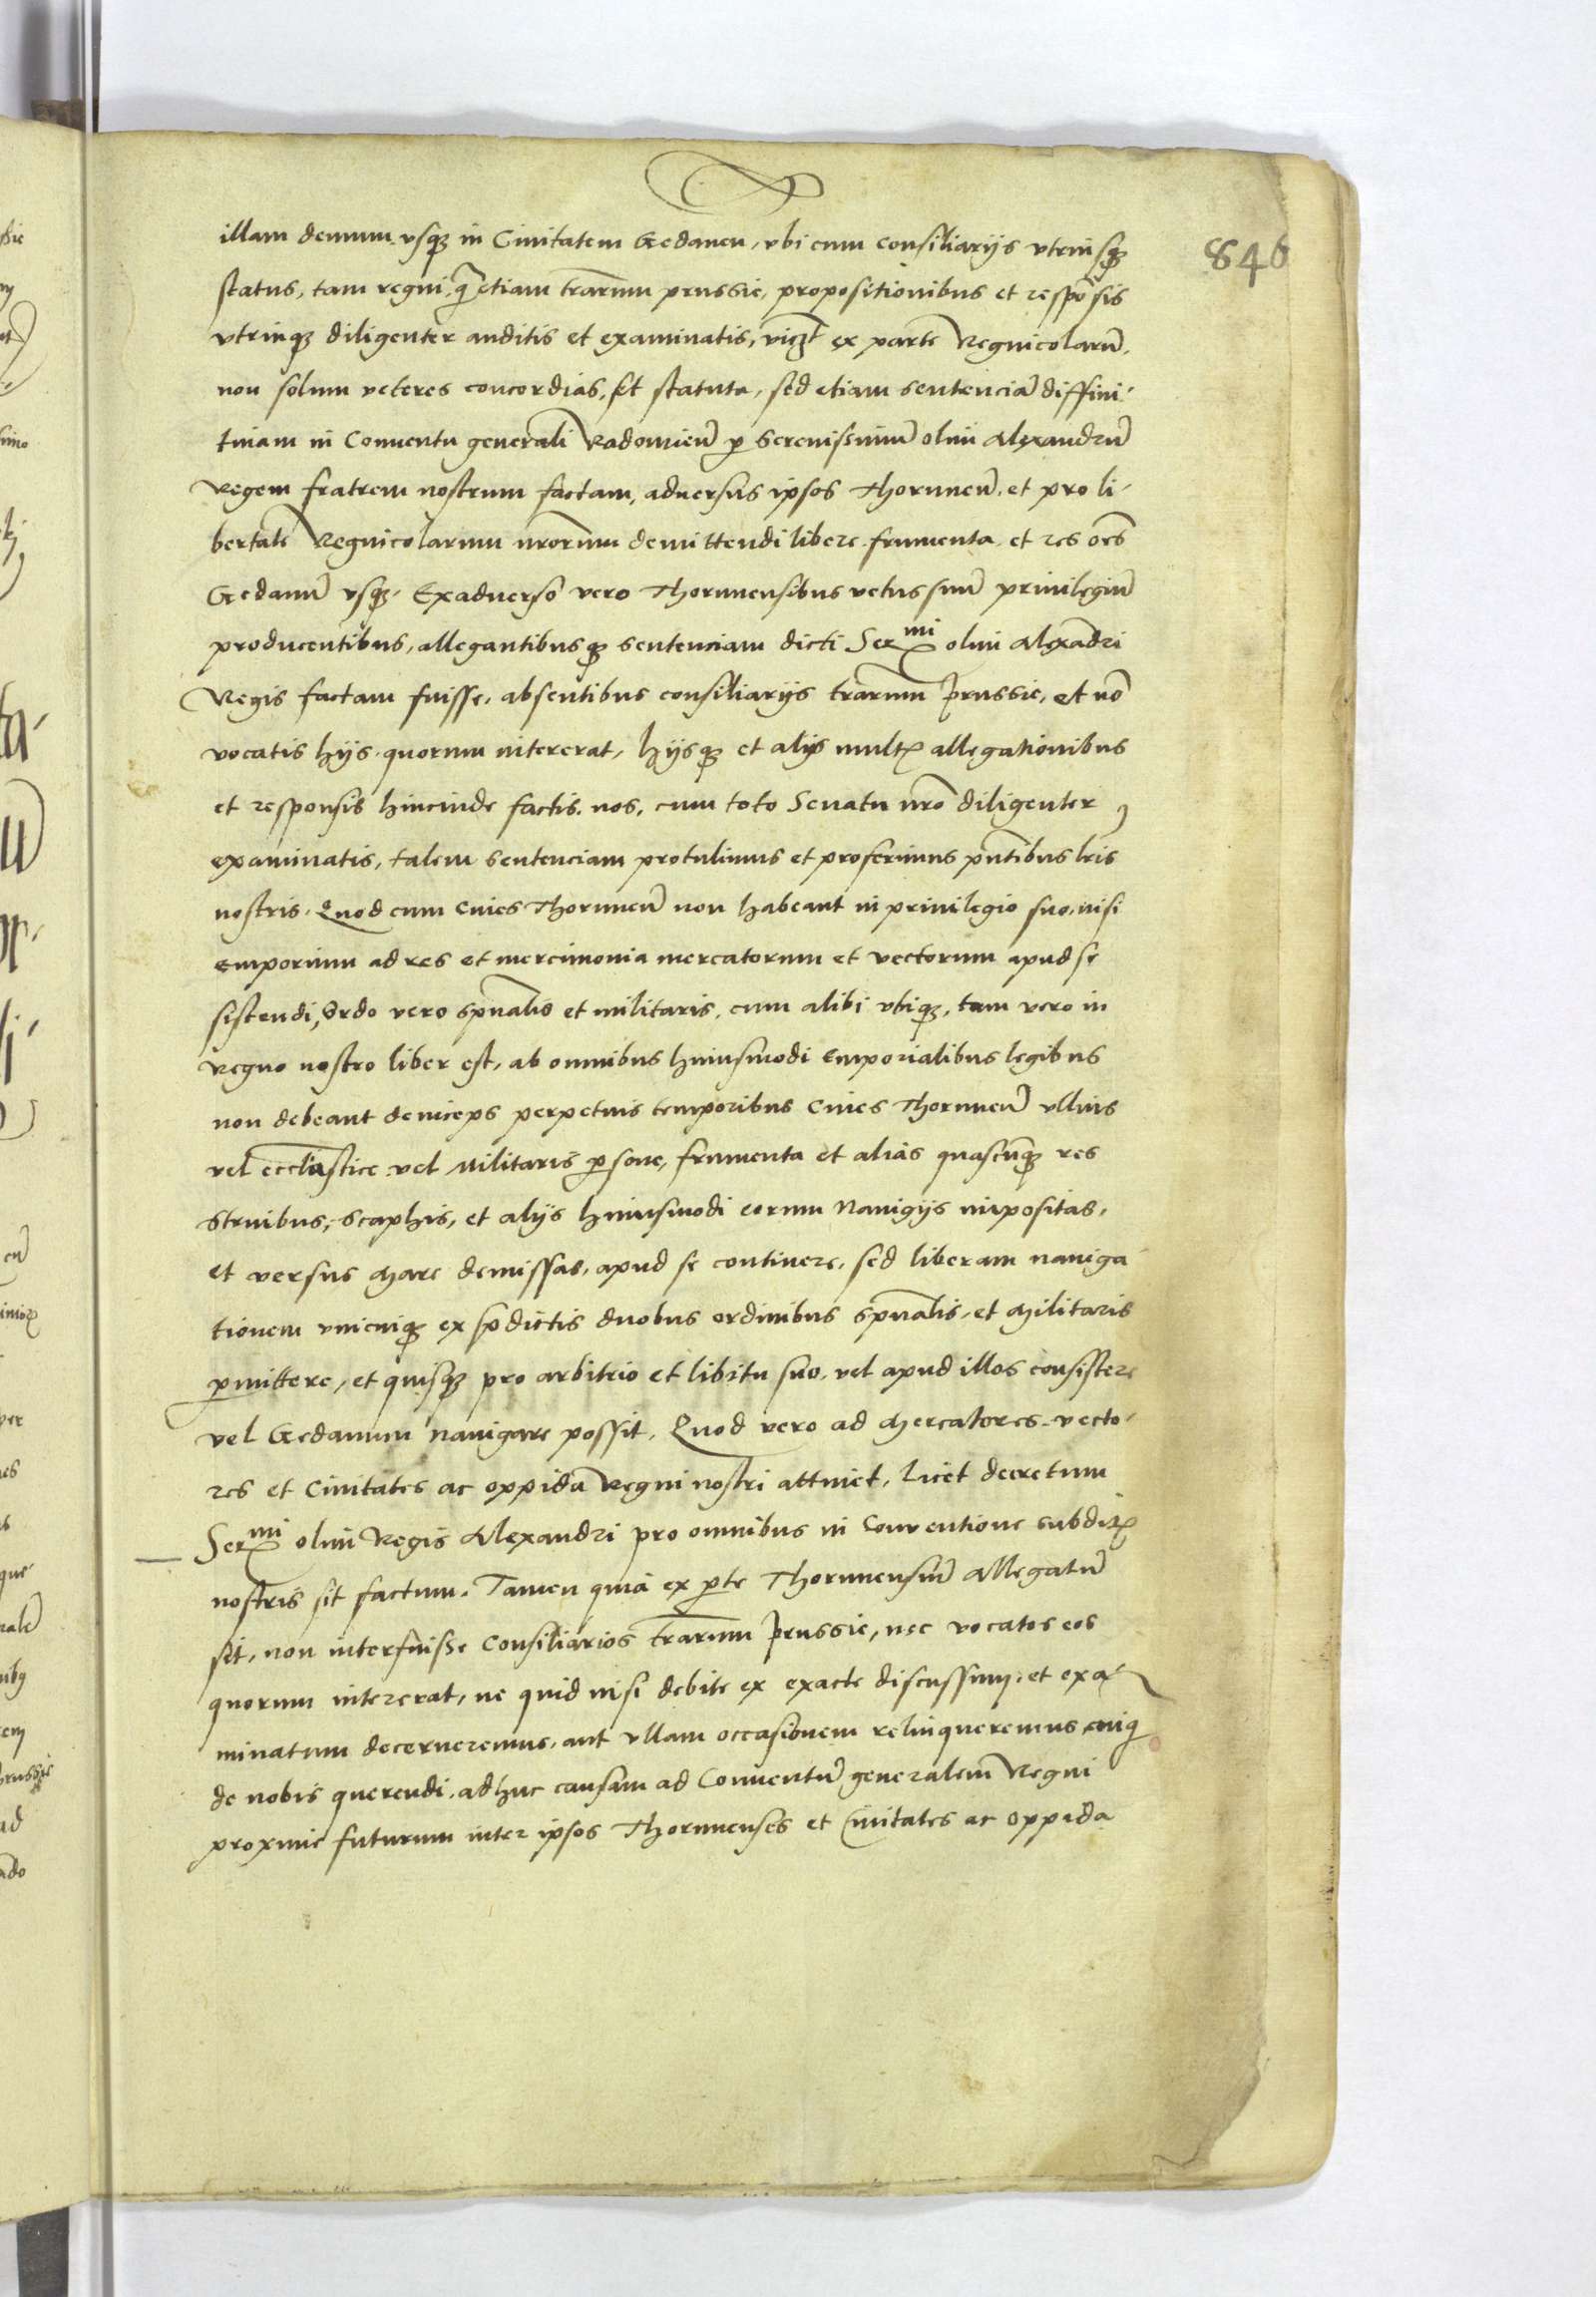 846
illam demum vsq̨ in Ciuitatem Gedaneñ, vbi cum consiliarijs vtriusq̨
status, tam regni, q̃ etiam trarum prussie, propositionibus et respõsis
vtrinq̨ diligenter auditis et examinatis, vigzt ex parte Regnicolarũ,
non solum veteres concordias, et statuta, sed etiam sentenciã diffini-
tiuam in Conuentu generali Radomieñ p serenissimũ olim Alexandrũ
Regem fratrem nostrum factam, aduersus ipsos Thoruneñ, et pro li-
bertate Regnicolarum nrorum demittendi libere frumenta et res oẽs
Gedanũ vsq̨. Exaduerso vero Thorunensibus vetus suũ priuilegiũ
producentibus, allegantibusq̨ sentenciam dicti Ser mi olim Alexãdri
Regis factam fuisse, absentibus consiliarijs trarum prussie, et nõ
vocatis hijs quorum intererat, hijsq̨ et alijs mult allegationibus
et responsis hincinde factis, nos, cum toto Senatu nro diligenter
examinatis, talem sentenciam protulimus et proferimus pñtibus lris
nostris. Quod cum Ciues Thoruneñ non habeant in priuilegio suo, nisi
emporium ad res et mercimonia mercatorum et vectorum apud se
sistendi, Ordo vero spualis et militaris, cum alibi vbiq̨, tam vero in
regno nostro liber est, ab omnibus huiusmodi emporialibus legibus
non debeant deinceps perpetuis temporibus Ciues Thoruneñ vllius
vel eccliastice vel militaris psone, frumenta et alias quascũq̨ res
struibus, scaphis, et alijs huiusmodi eorum Nauigijs impositas,
et versus Mare demissas, apud se continere, sed liberam nauiga
tionem vnicuiq̨ ex pdictis duobus ordinibus spualis, et Militaris
pmittere, et quisq̨ pro arbitrio et libitu suo, vel apud illos consistere
vel Gedanum Nauigare possit. Quod vero ad Mercatores, vecto-
res et Ciuitates ac oppida Regni nostri attinet, licet decretum
Ser mi olim Regis Alexandri pro omnibus in Conuentione subdit
nostris sit factum. Tamen quia ex pte Thorunensiũ Allegatũ
sit, non interfuisse Consiliarios trarum prussie, nec vocatos eos
quorum intererat, ne quid nisi debite ex exacte discussum, et exa-
minatum decerneremus, aut vllam occasionem relinqueremus cuiq̨
de nobis querendi, adhuc causam ad Conuentũ generalem Regni
proxime futurum inter ipsos Thorunenses et Ciuitates ac Oppida